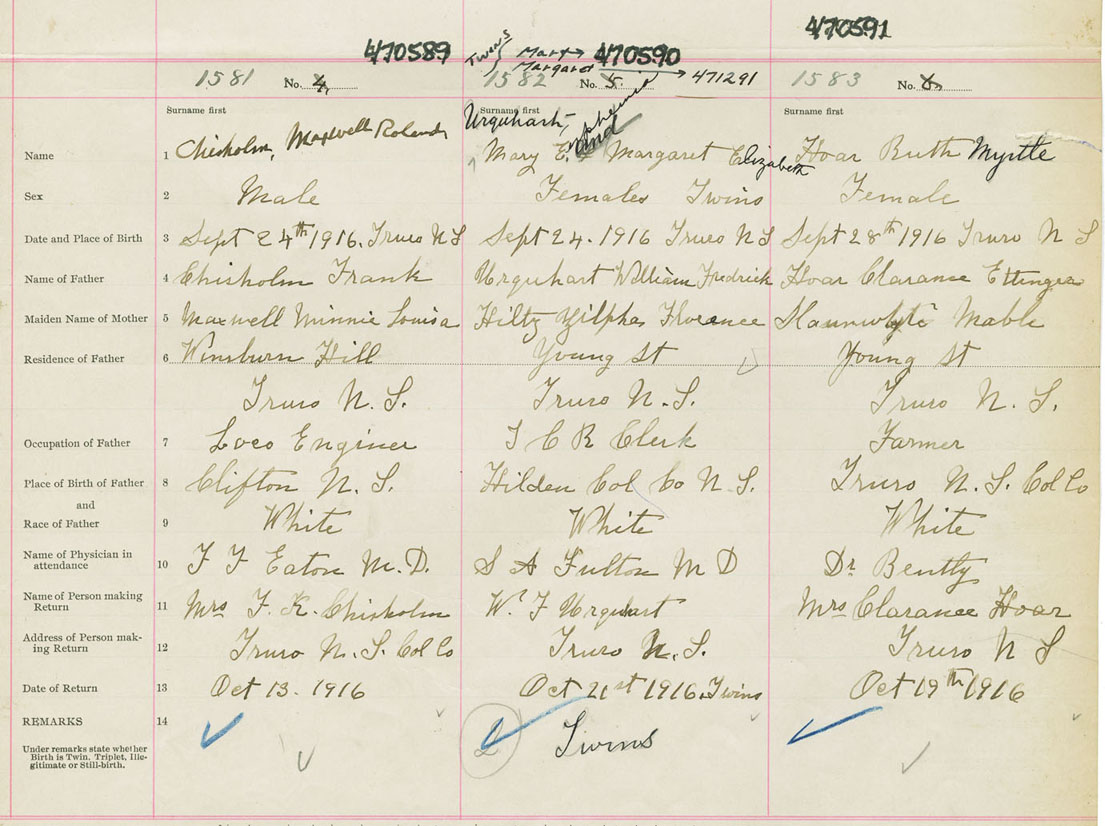 470589 470590 470591
Twins Mary → Margaret → 471291
1581 No. 4 1582 No. 5 1583 No. 6
Surname first Surname first Surname first
Name 1 Chisholm, Maxwell Roland Urquhart, Mary E. and Margaret Elizabeth Hoar Ruth Myrtle
Sex 2 Male Females Twins Female
Date and Place of Birth 3 Sept 24th 1916. Truro N S Sept 24. 1916 Truro N S Sept 28th 1916 Truro N S
Name of Father 4 Chisholm Frank Urquhart William Fredrick Hoar Clarance Ettinger
Maiden Name of Mother 5 Maxwell Minnie Louisa Hiltz Zilpha Florence Mable
Residence of Father 6 Wimburn Hill Young St Young St
Truro N. S. Truro N. S. Truro N. S.
Occupation of Father 7 Loco Enginer I C R Clerk Farmer
Place of Birth of Father 8 Clifton N. S. Hilden Col Co N. S. Truro N. S. Col Co
and
Race of Father 9 White White White
Name of Physician in attendance 10 F F Eaton M. D. S A Fulton M D Dr Bently
Name of Person making Return 11 Mrs F. K. Chisholm Wm F Urquhart Mrs Clarance Hoar
Address of Person making Return 12 Truro N. S. Col Co Truro N. S. Truro N S
Date of Return 13 Oct 13. 1916 Oct 21st 1916. Twins Oct 19th 1916
REMARKS 14 2 Twins
Under remarks state whether
Birth is Twin, Triplet, Ille-
gitimate or Still-birth.